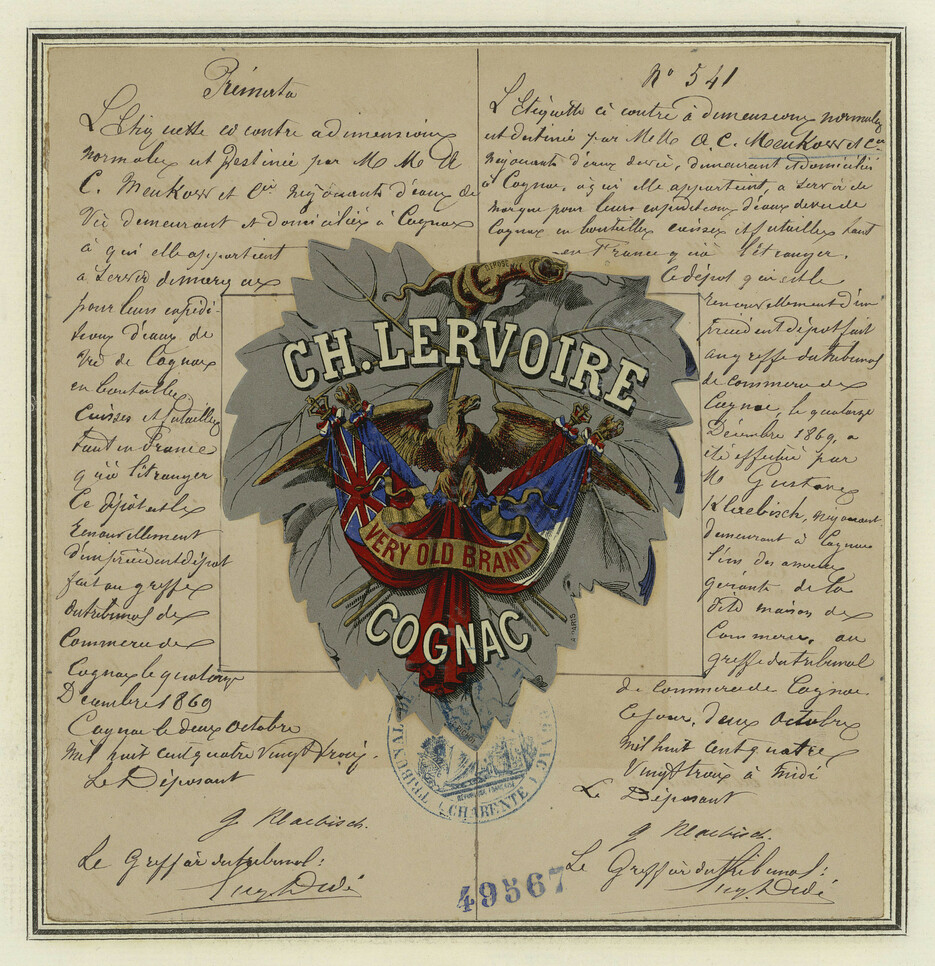 Primata
L'Etiquette ci contre a dimensions
normales et destinée par M M A
C. Meukow et Cie négociants d'eaux de
Vie demeurant et domiciliés à Cognac
à qui elle appartient
a servir de marque
pour leurs expédi-
tions d'eaux de
Vie de Cognac
en bouteilles
Caisses et futailles
tant en France
qu'à l'étranger
Ce dépôt est le
Renouvellement
d'un précédent dépôt
fait au greffe
du tribunal de
Commerce de
Cognac le quatorze
Décembre 1869
Cognac le deux Octobre
mil huit cent quatre Vingt trois.
Le Déposant
G Klaebisch.
Le Greffier du tribunal:
N° 541
L'Etiquette ci contre à dimensions normales
est destinée par MM A. C. Meukow et Cie
négociants d'eaux de vie, demeurant et domiciliés
à Cognac, à qui elle appartient, a servir de
marque pour leurs expéditions d'eaux de vie de
Cognac en bouteilles caisses et futailles tant
en France qu'à l'étranger.
Ce dépôt qui est le
renouvellement d'un
précédent dépôt fait
au greffe du tribunal
de commerce de
Cognac, le quatorze
Décembre 1869, a
été effectué par
M Gustave
Klaebisch, négociant
demeurant à Cognac
l'un des associés
gérants de la
dite maison de
Commerce, au
greffe du tribunal
de commerce de Cognac
ce jour, deux Octobre
mil huit cent quatre
Vingt trois à midi
Le Déposant
G Klaebisch.
Le Greffier du tribunal:
DÉPOSÉ
CH. LERVOIRE
VERY OLD BRANDY
COGNAC
A PARIS
TRIBUNAL
RÉPUBLIQUE FRANÇAISE
CHARENTE
49567